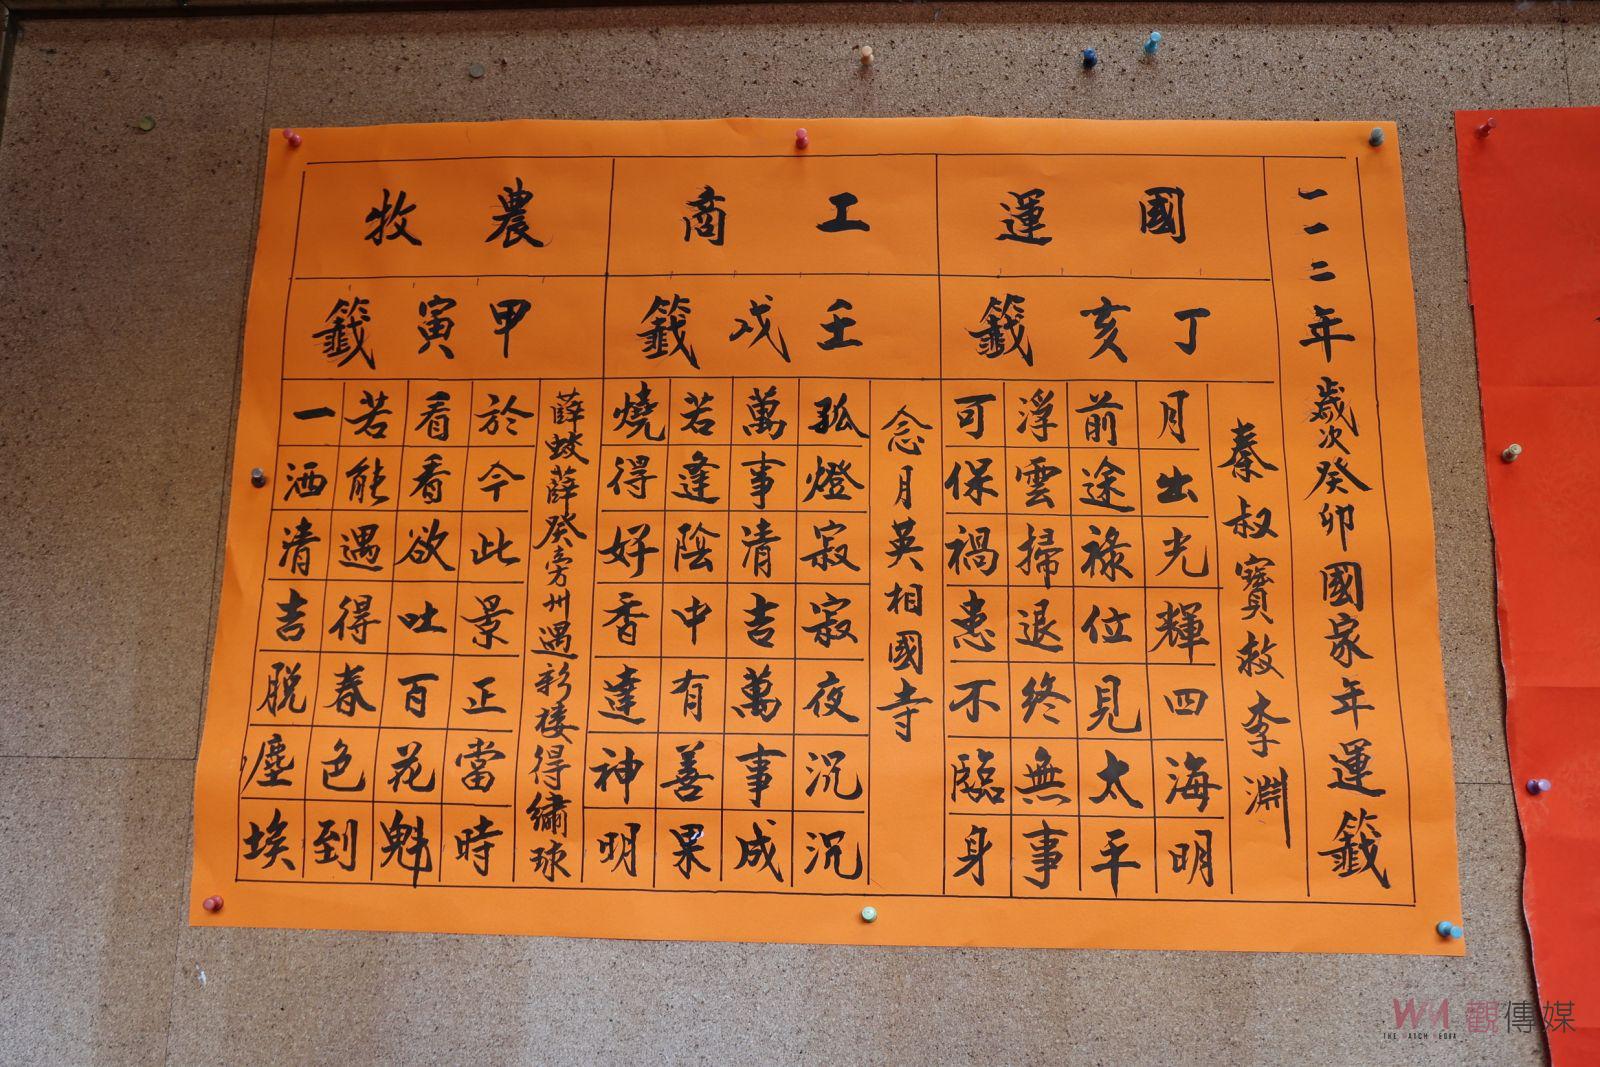 一一二年歲次癸卯國家年運籤
國運
丁亥籤
秦叔寶救李淵
月出光輝四海明
前途祿位見太平
浮雲掃退終無事
可保禍患不臨身
工商
壬戌籤
念月英相國寺
孤燈寂寂夜沉沉
萬事清吉萬事成
若逢陰中有善果
燒得好香達神明
農牧
甲寅籤
薛蛟薛癸旁州遇彩樓得繡球
於今此景正當時
看看欲吐百花魁
若能遇得春色到
一洒清吉脱塵埃
觀傳媒
THE WATCH MEDIA